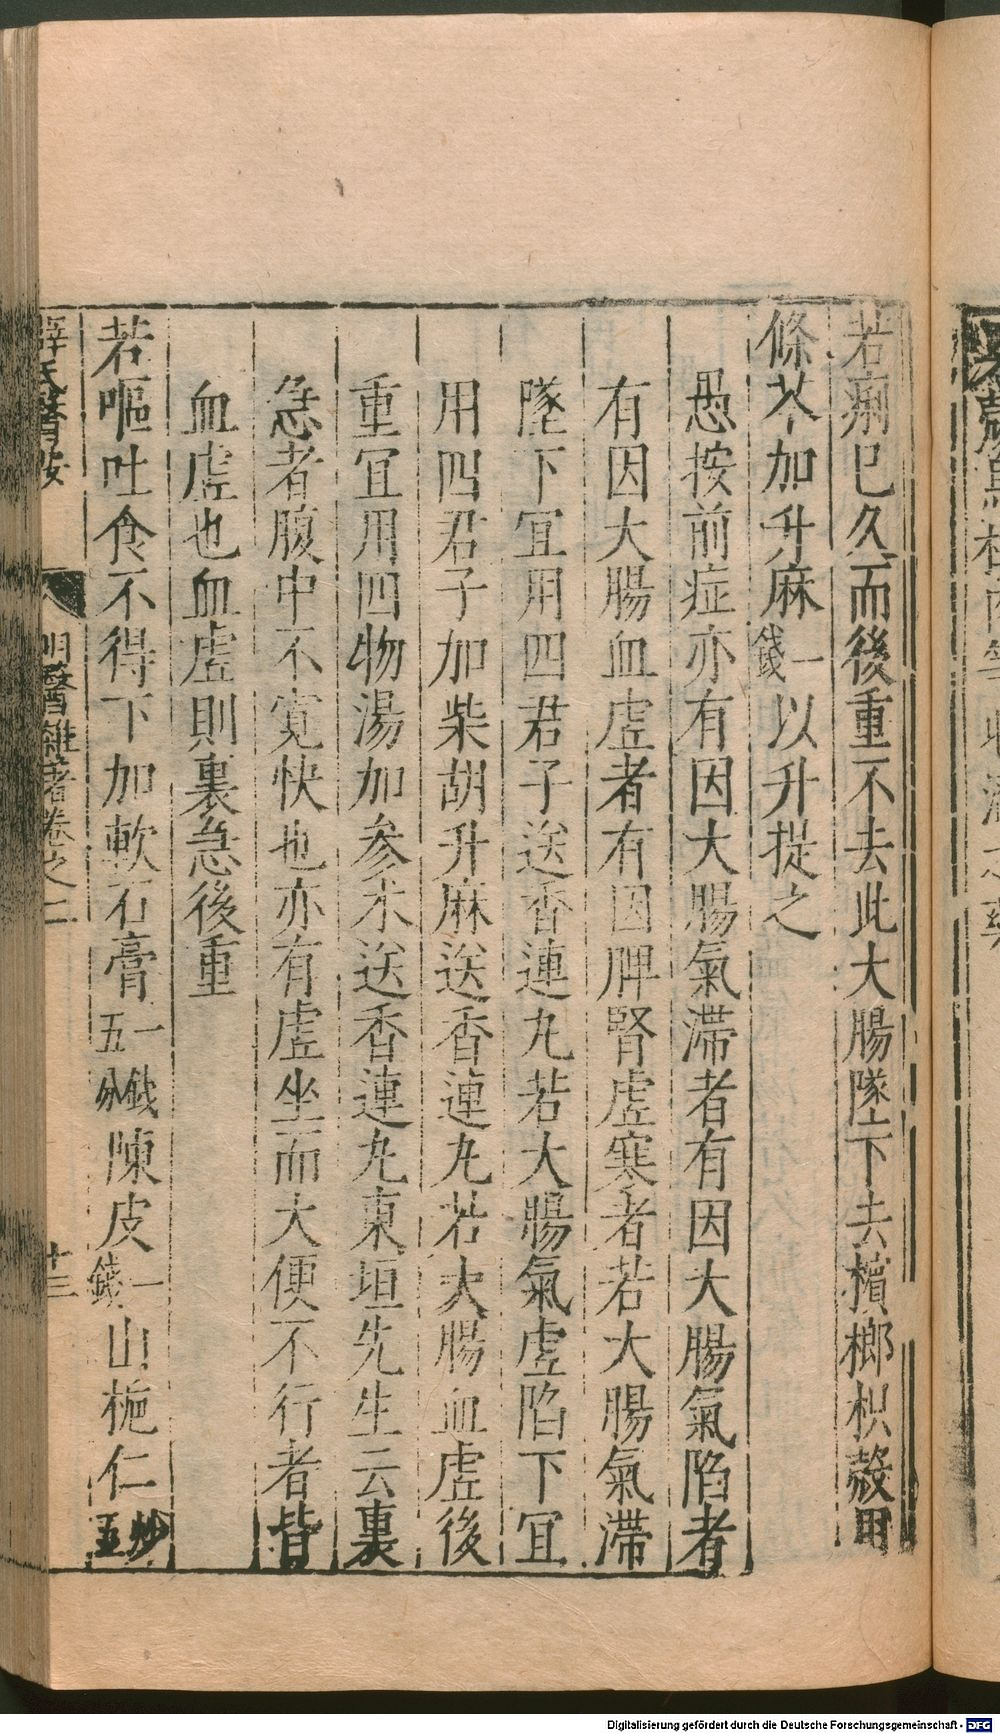 若痢已久而後重不去此大腸墜下去檳榔枳殼用
條芩加升麻一錢以升提之
愚按前症亦有因大腸氣滯者有因大腸氣陷者
有因大腸血虛者有因脾腎虛寒者若大腸氣滯
墜下宜用四君子送香連丸若大腸氣虛陷下宜
用四君子加柴胡升麻送香連丸若大腸血虛後
重宜用四物湯加參朮送香連丸東垣先生云裏
急者腹中不寬快也亦有虛坐而大便不行者皆
血虛也血虛則裏急後重
若嘔吐食不得下加軟石膏一錢五分陳皮一錢山梔仁炒五
薛氏醫按
明醫雜著卷之二
十三
Digitalisierung gefördert durch die Deutsche Forschungsgemeinschaft - DFG